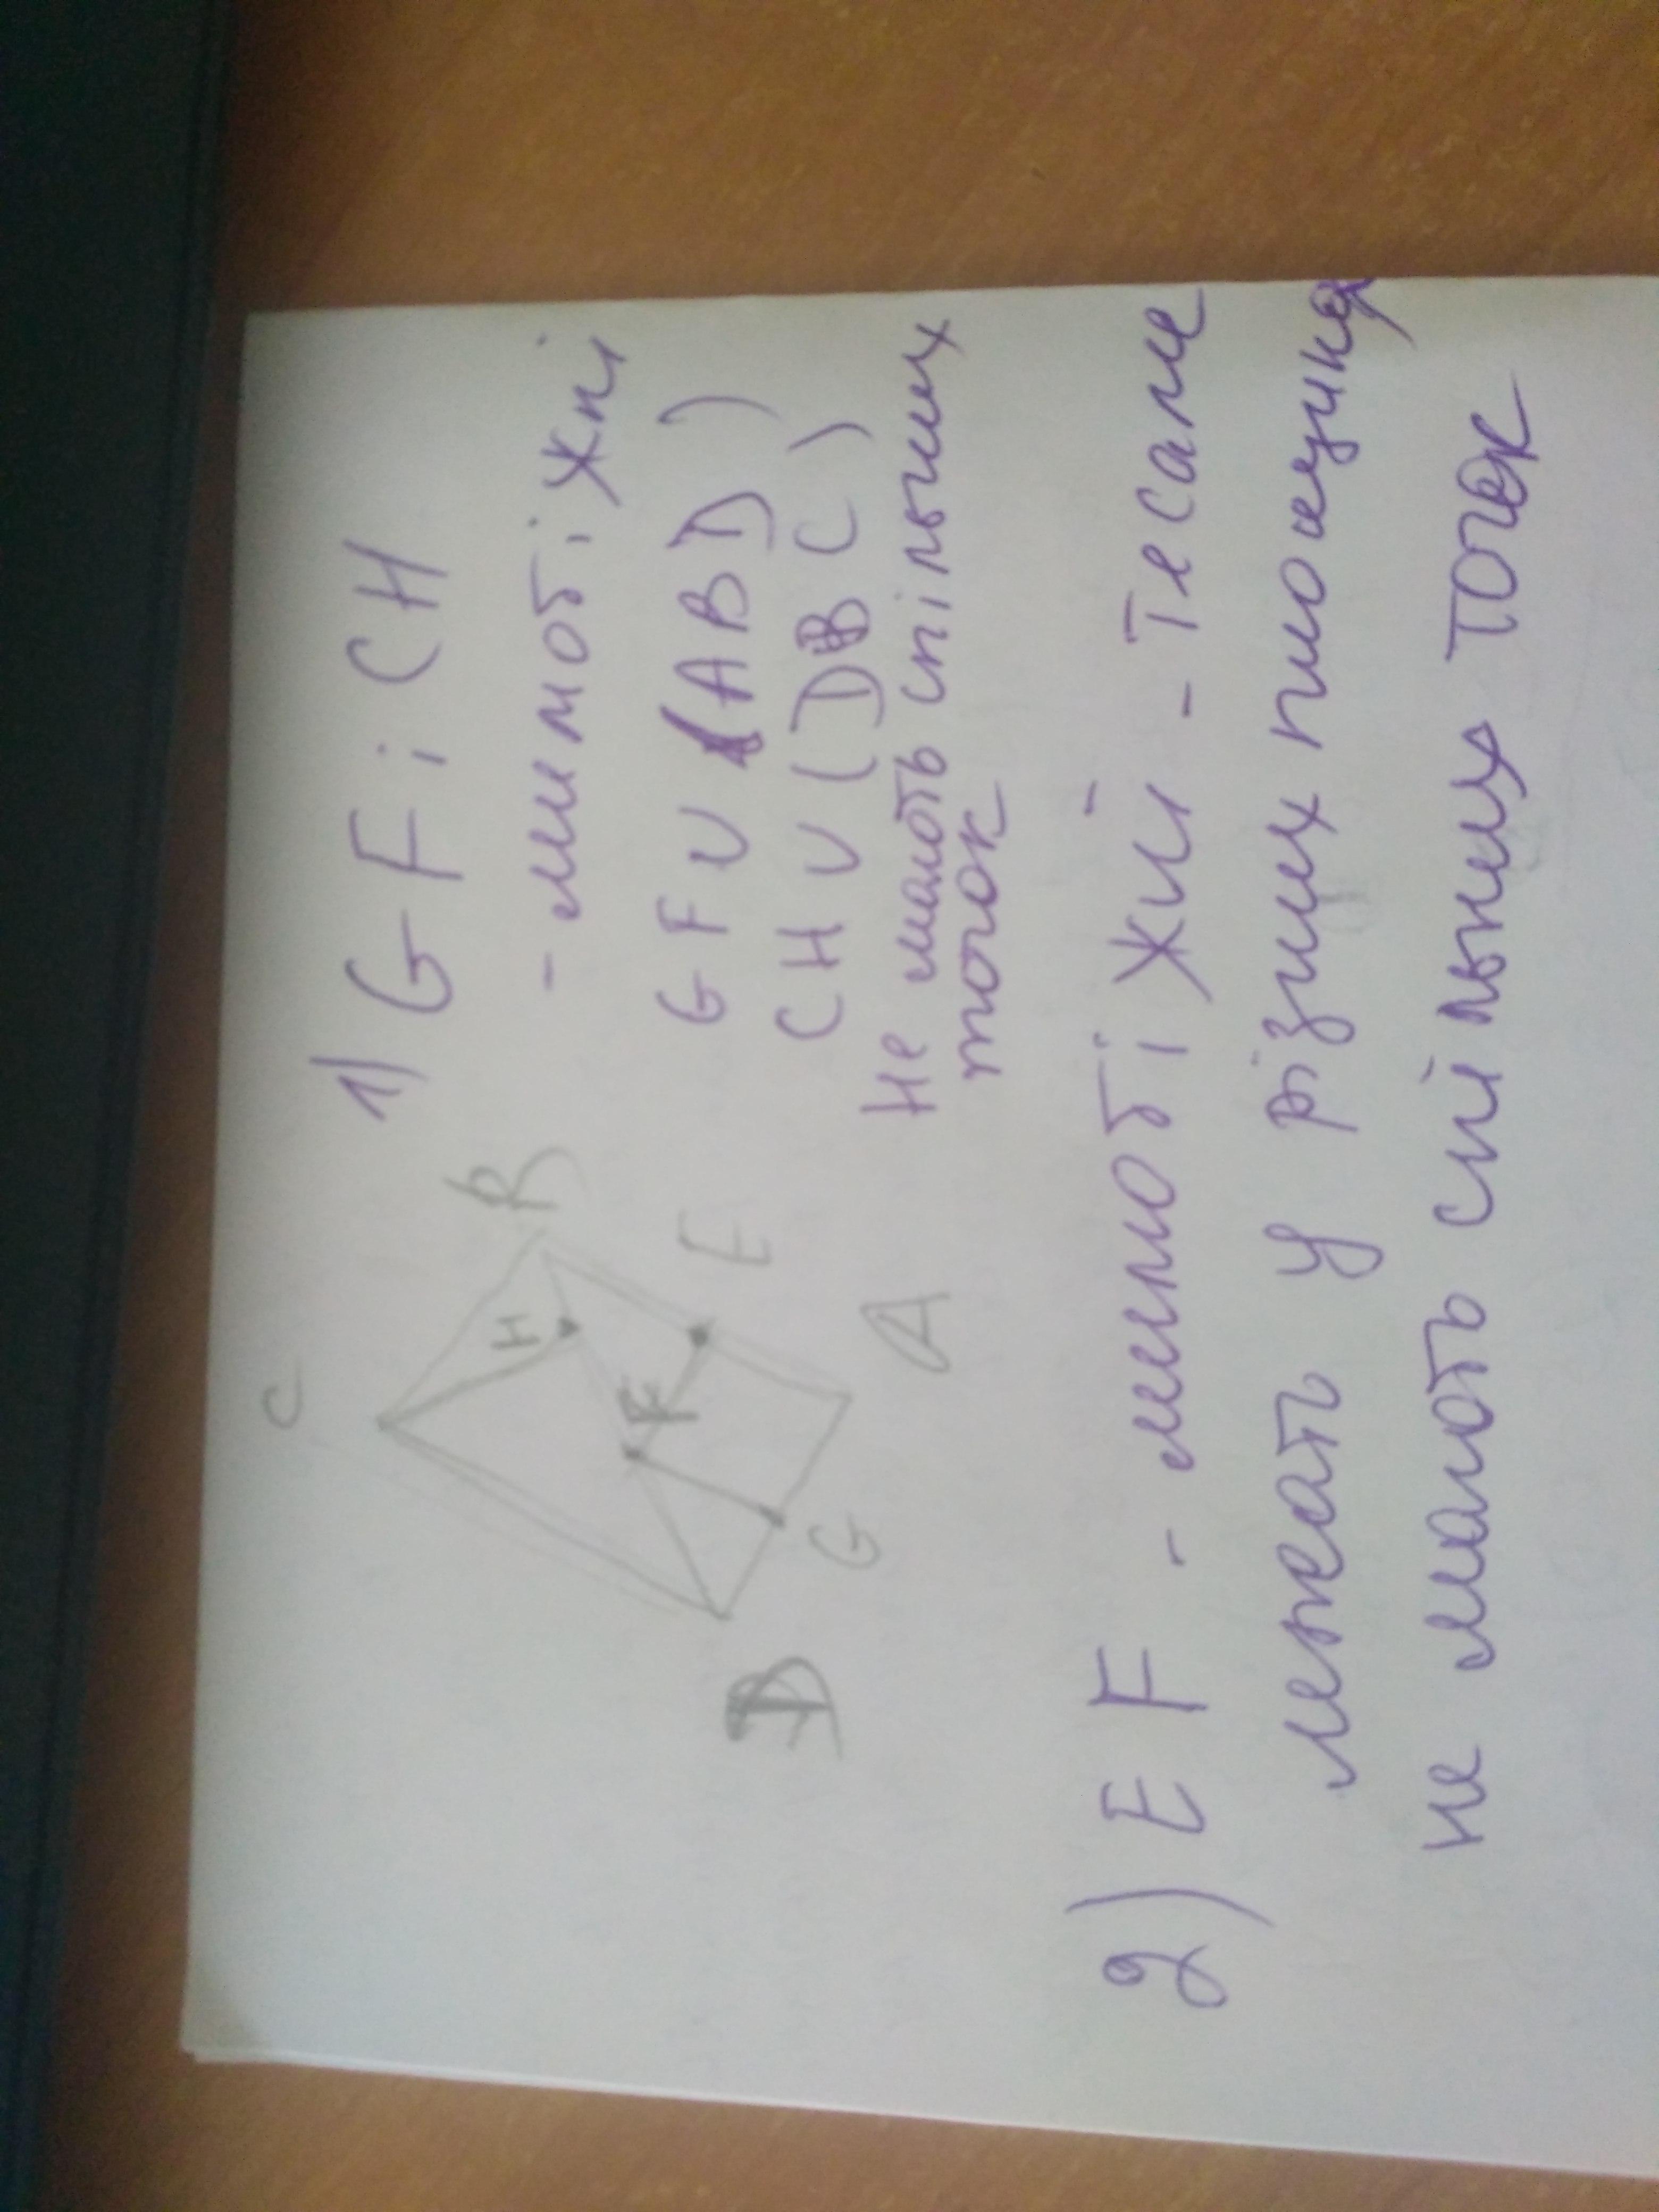 C
H
B
F
E
D
G
A
1) GF i CH
- мимобіжні
GF U (ABD)
CH U (DBC)
Не мають спільних
точок
2) EF - мимобіжй - Те саме
лежать у різних площинах
не мають спільних точок